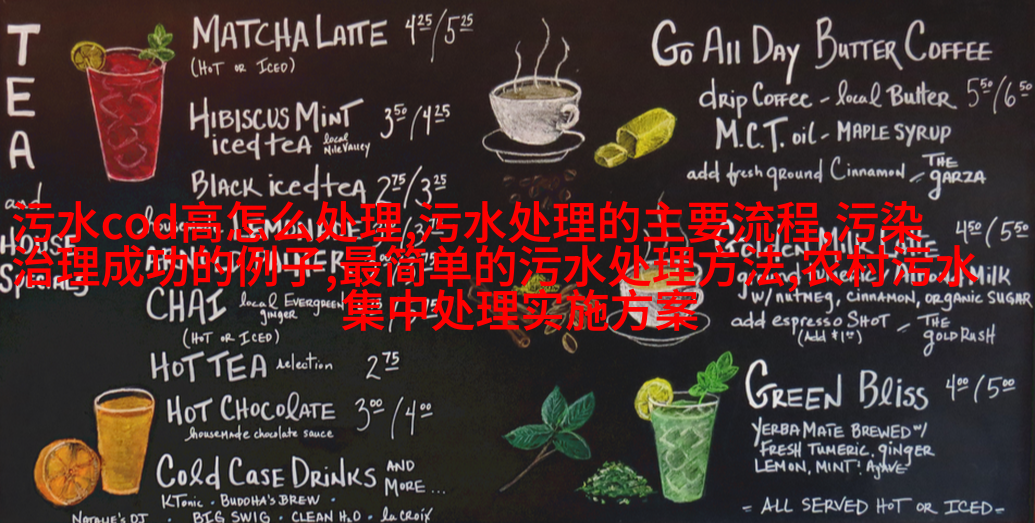 TEA
and
HOUSE
SPECIALS
MATCHA LATTE 4²⁵/5²⁵
(HOT OR ICED)
HIBISCUS MINT
iced tea local Nile Valley 3⁵⁰/4²⁵
BLACK iced tea 2⁷⁵/3²⁵
LEMONADE
ARNOLD PALMER
CHAI local EVERGREEN
ginger
(HOT OR ICED)
HOT TEA selection 2⁷⁵
HOT CHOCOLATE 3⁰⁰/4⁰⁰
housemade chocolate sauce
Cold CASE DRINKS AND
MORE...
KTonic · BUDDHA'S BREW ·
BIG SWIG · CLEAN H₂O · la CROIX
GO ALL DAY BUTTER COFFEE
drip COFFEE - local Butter 5⁵⁰/6⁵⁰
M.C.T. oil - MAPLE SYRUP
add fresh ground Cinnamon - THE GARZA
4⁵⁰/5⁵⁰
Golden Milk
W/ NUTMEG, CINNAMON, ORGANIC SUGAR
add espresso SHOT - THE
(Add $1⁰⁰) gOLD RUSH
GREEN Bliss 4⁰⁰/5⁰⁰
YERBA MATE BREWED W/
FRESH TUMERIC, GINGER
LEMON, MINT, AGAVE
- ALL SERVED HOT OR ICED -
污水cod高怎么处理,污水处理的主要流程,污染
治理成功的例子,最简单的污水处理方法,农村污水
集中处理实施方案